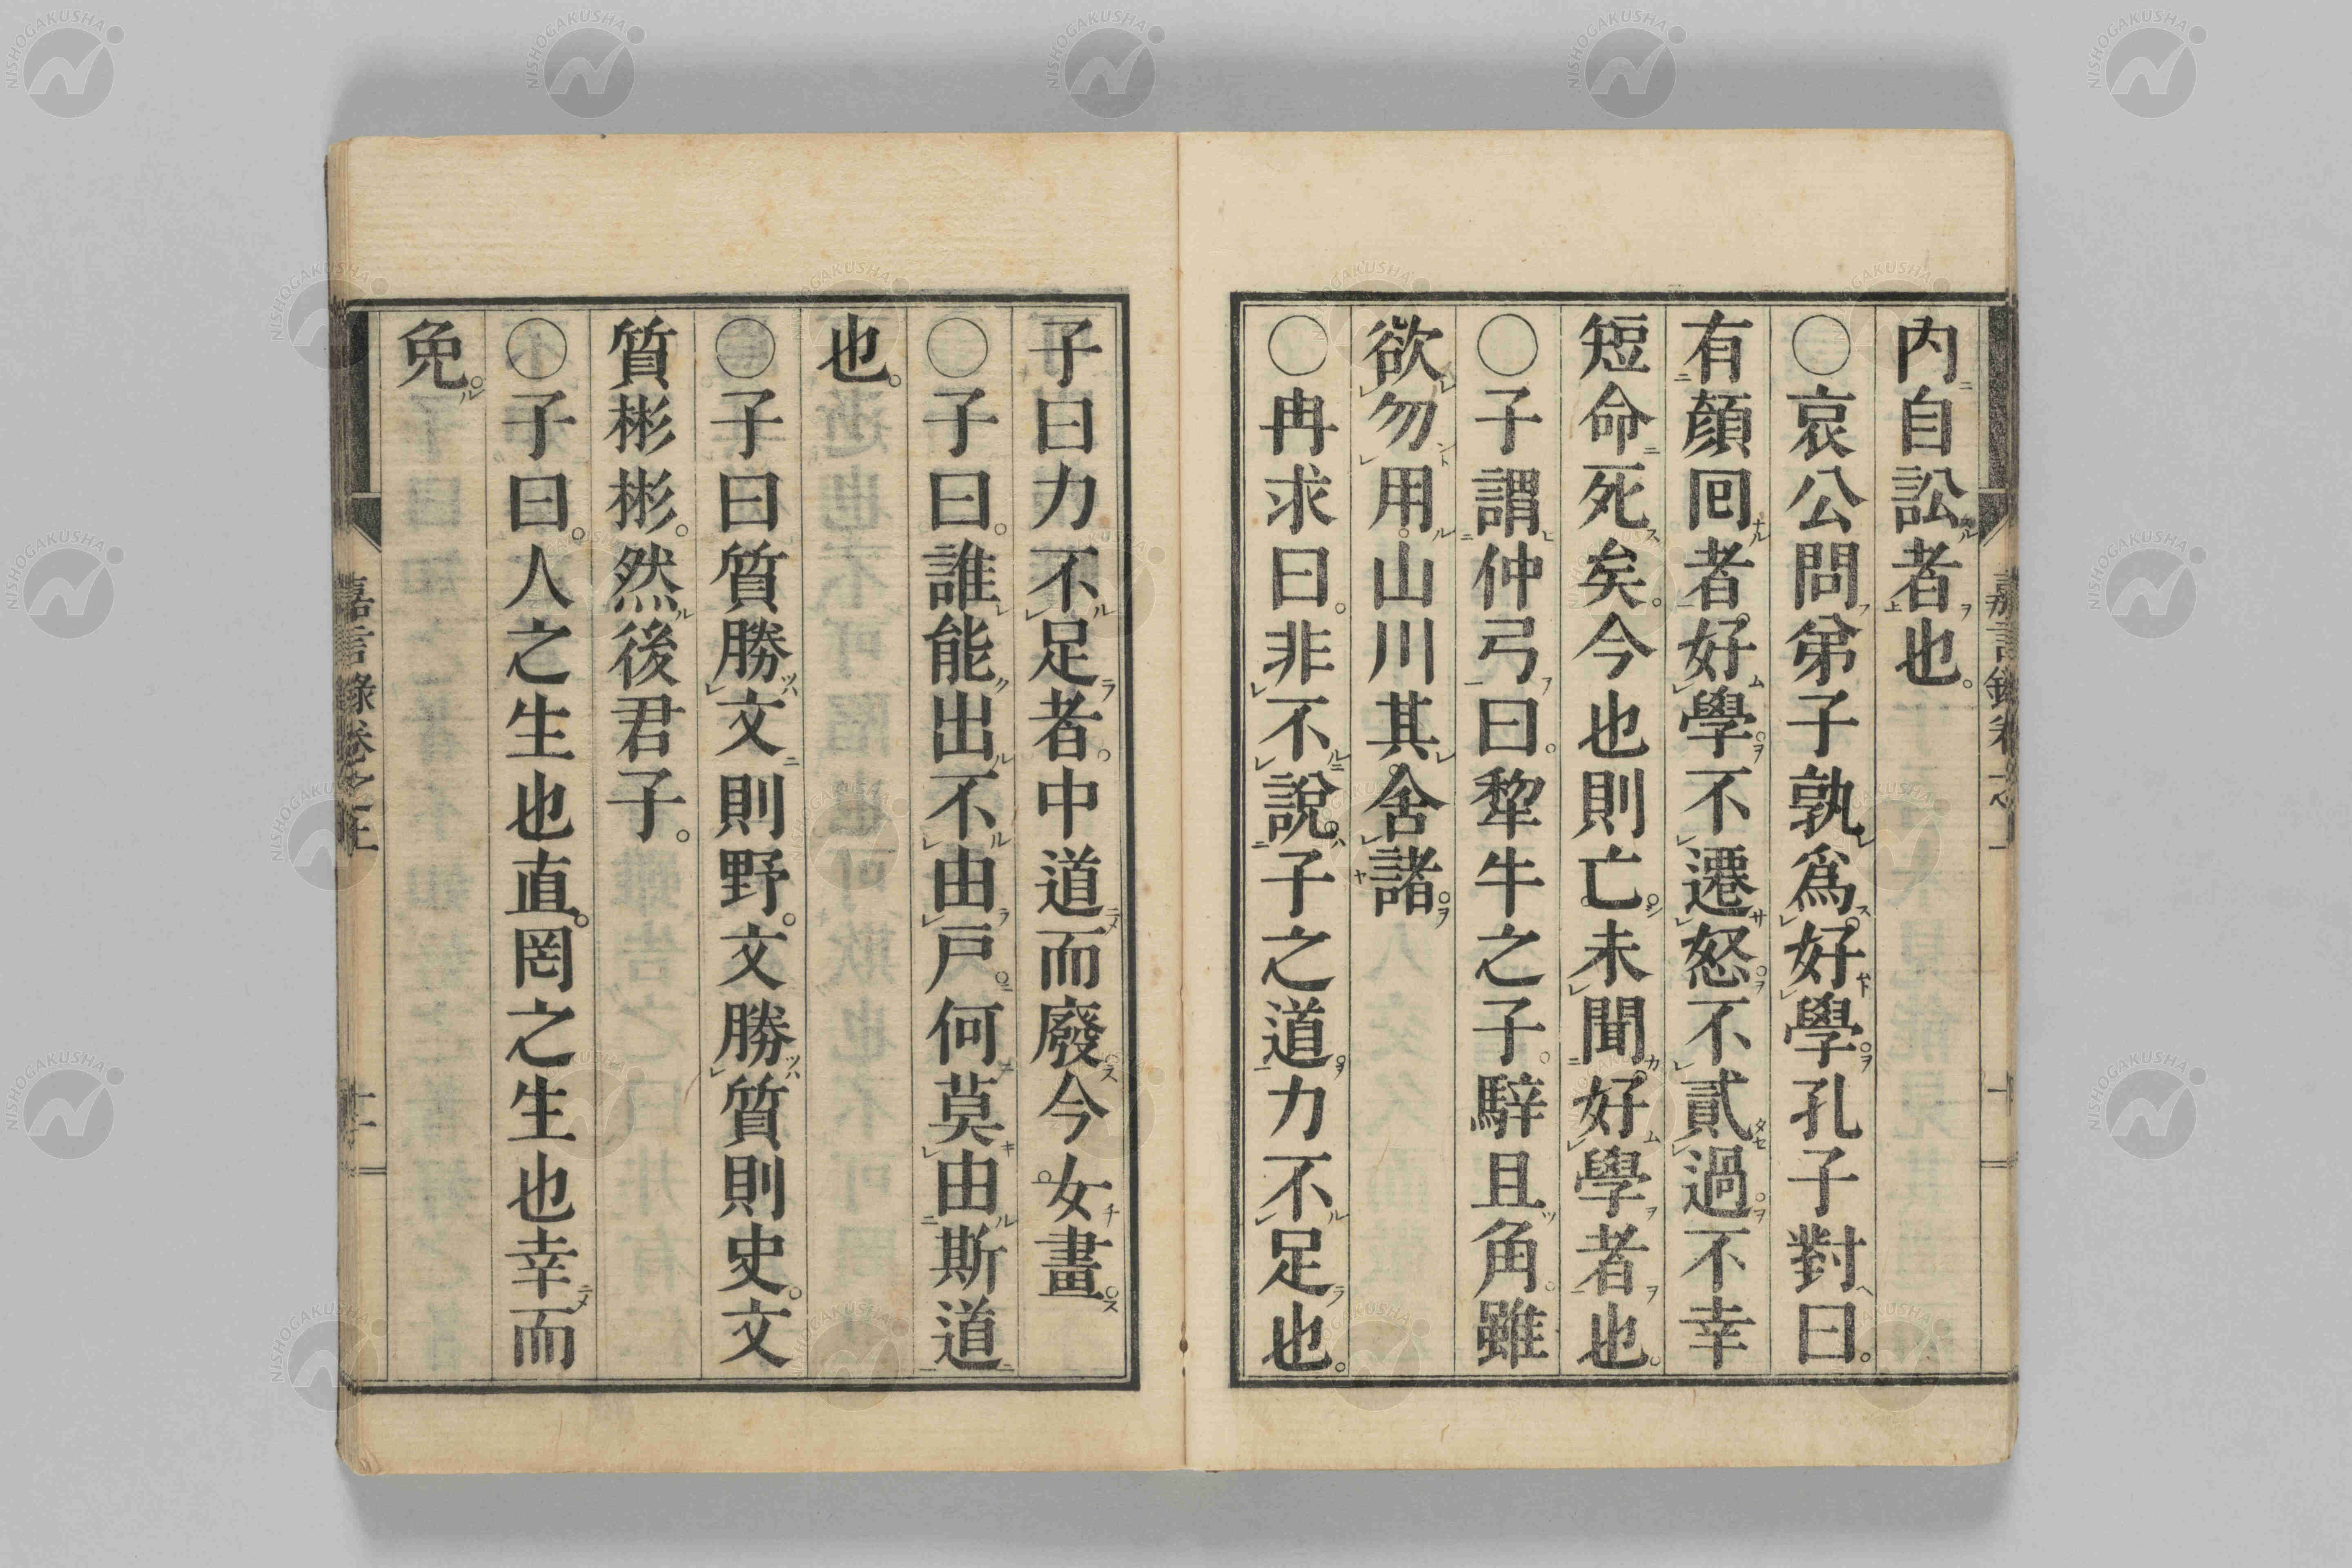 内自訟者也。
〇哀公問弟子孰爲好學孔子對曰。
有顏回者。好學。不遷怒。不貳過。不幸
短命死矣。今也則亡。未聞好學者也。
〇子謂仲弓曰。犂牛之子。騂且角。雖
欲勿用。山川其舍諸。
〇冉求曰。非不說。子之道。力不足也。
子曰力不足者。中道而廢。今女畫。
〇子曰。誰能出不由戸。何莫由斯道
也。
〇子曰質勝文則野。文勝質則史。文
質彬彬。然後君子。
〇子曰。人之生也直。罔之生也幸而
免。
嘉言錄卷之上
十二
NISHOGAKUSHA